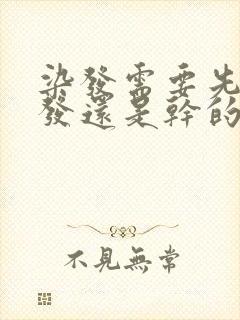 染發需要先
發還是幹的
不見無常